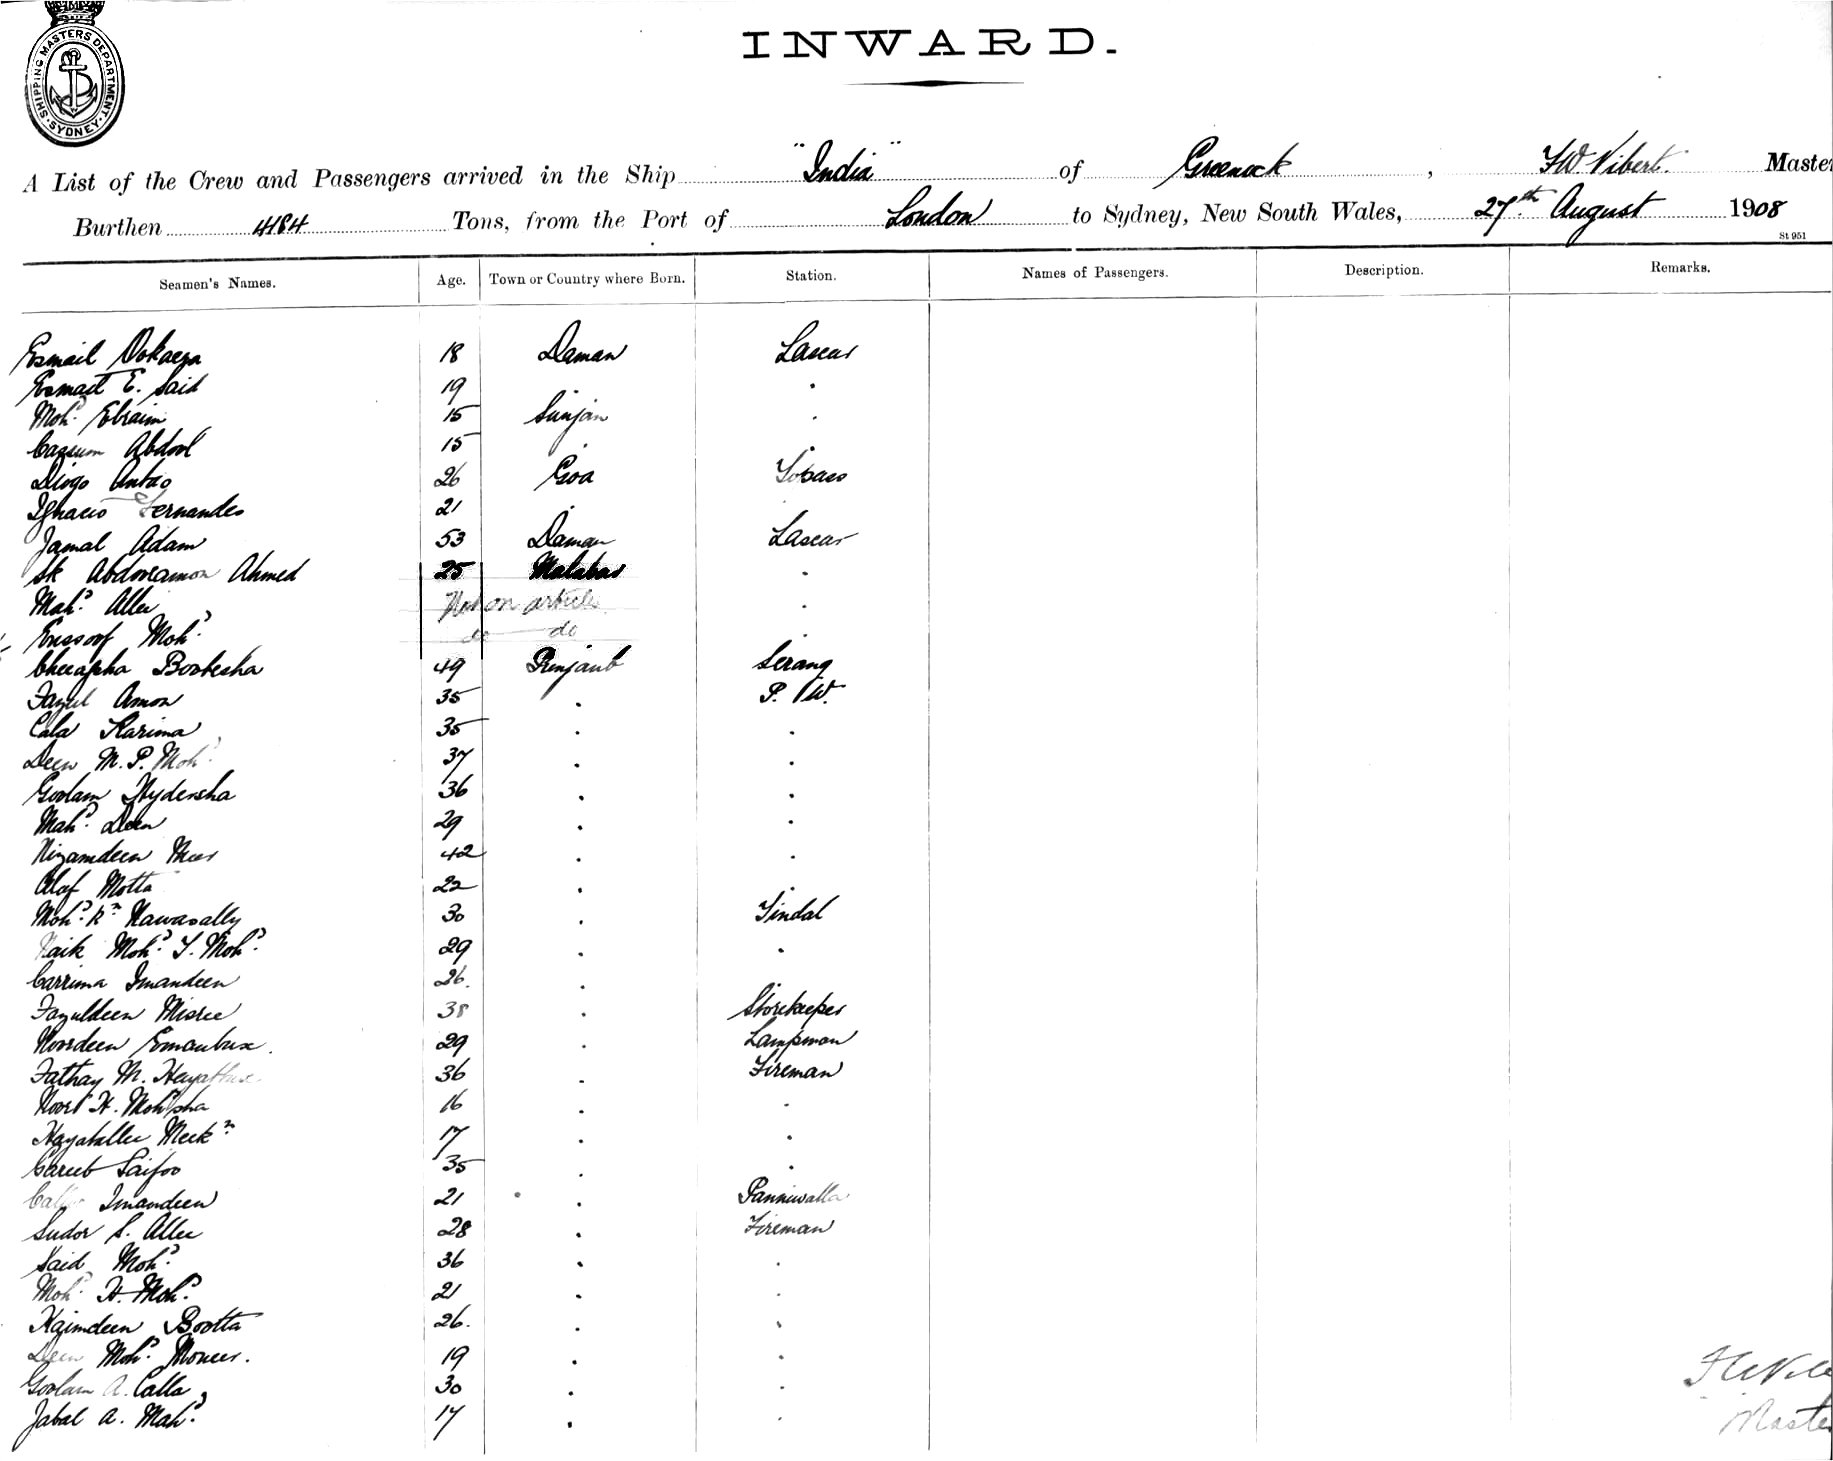 SHIPPING MASTERS DEPARTMENT. SYDNEY.
INWARD.
A List of the Crew and Passengers arrived in the Ship "India" of Greenock, FW Vibert. Master
Burthen 4184 Tons, from the Port of London to Sydney, New South Wales, 27th. August 1908
St 951
Seamen's Names. Age. Town or Country where Born. Station. Names of Passengers. Description. Remarks.
Esmail 18 Daman Lascar
Esmail E. Said 19 "
Moh'd. Ebraim 15 Sunjan "
Cassum Abdool 15 " "
Diogo Antao 26 Goa Topass
Ignacio Fernandes 21 " "
Jamal Adam 53 Daman Lascar
Sk Abdoolramon Ahmed 25 Malabar "
Mah'd. Allee Not on articles "
Eussoof Moh'd. do do "
Boobesha 49 Punjaub Serang
Fazul Amon 35 " P. W.
Cala Karima 35 " "
Deen M. P. Moh'd. 37 " "
Goolam Hydersha 36 " "
Mah'd. Deen 29 " "
Nizamdeen Meer 42 " "
Alaf Motta 22 " "
Moh'd. Kn Nawasally 30 " Tindal
Naik Moh'd. T. Moh'd. 29 " "
Carrima Imandeen 26. "
Fazuldeen Misree 38 " Storekeeper
Noordeen Emanbux. 29 " Lampman
Fathay M. Hayatbux 36 " Fireman
Noor H. Moh'dsha 16 " "
Hayatallee Meekn 17 " "
Gareeb Saifoo 35 " "
Imandeen 21 " Panniwalla
Sudor S. Allee 28 " Fireman
Said Moh'd. 36 " "
Moh'd. H. Moh'd. 21 " "
Haimdeen Bootta 26. " "
Deen Moh'd. Moneer. 19 " "
Goolam A. Calla 30 " "
Jabal A. Mah'd. 17 " "
Master